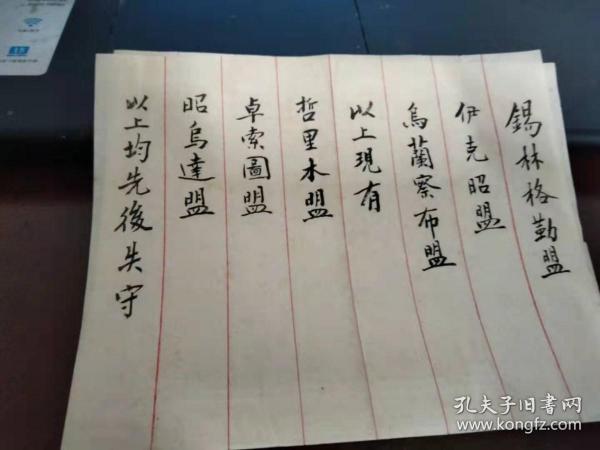 錫林格勒盟
伊克昭盟
烏蘭察布盟
以上現有
哲里木盟
卓索圖盟
昭烏達盟
以上均先後失守
孔夫子旧书网
www.kongfz.com